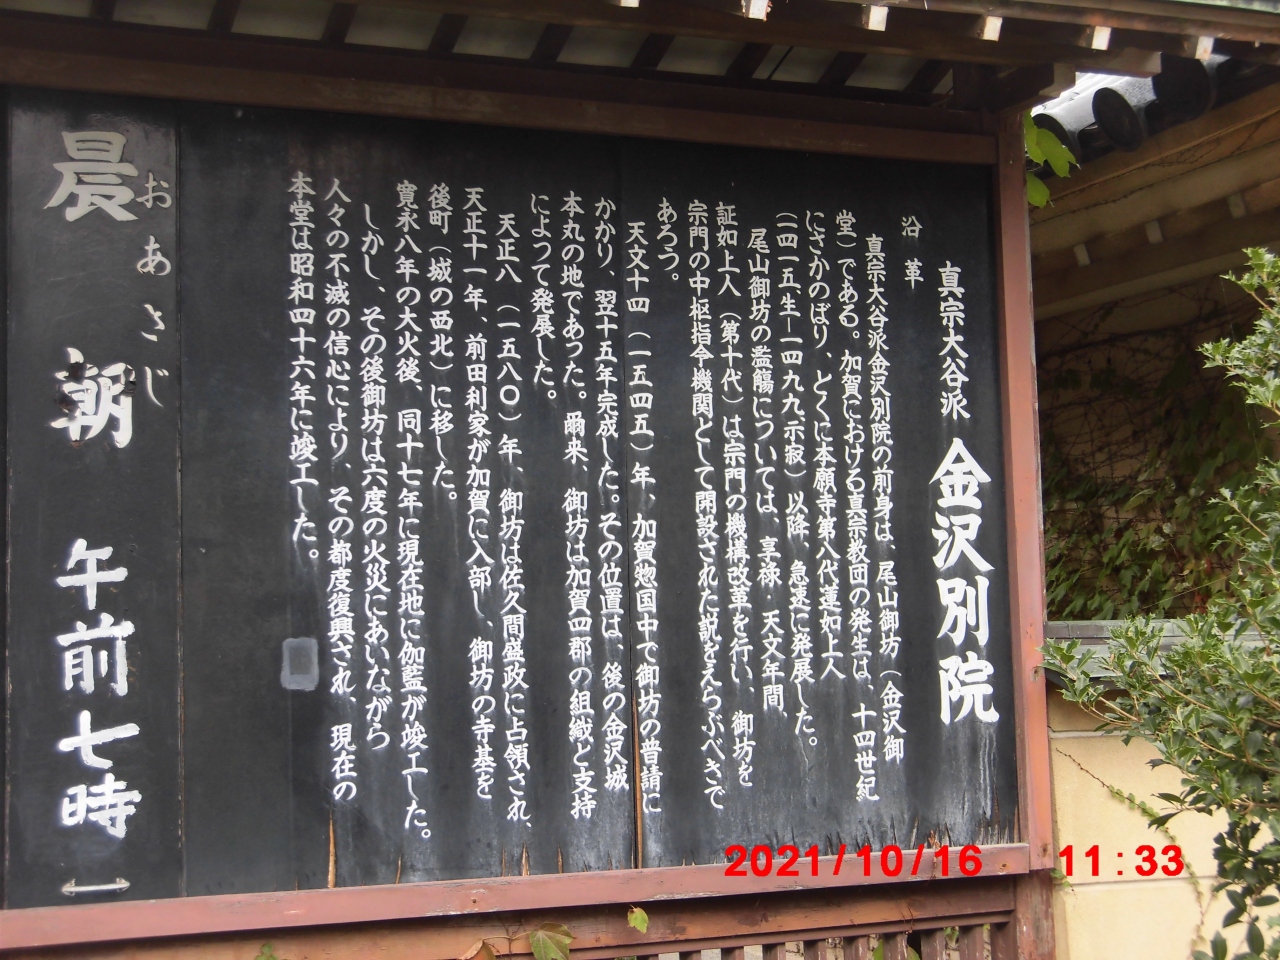 真宗大谷派 金沢別院
沿革
真宗大谷派金沢別院の前身は、尾山御坊（金沢御
堂）である。加賀における真宗教団の発生は、十四世紀
にさかのぼり、とくに本願寺第八代蓮如上人
（一四一五、生―一四九九、示寂）以降、急速に発展した。
尾山御坊の濫觴については、享禄・天文年間、
証如上人（第十代）は宗門の機構改革を行い、御坊を
宗門の中枢指令機関として開設された説をえらぶべきで
あろう。
天文十四（一五四五）年、加賀惣国中で御坊の普請に
かかり、翌十五年完成した。その位置は、後の金沢城
本丸の地であった。爾来、御坊は加賀四郡の組織と支持
によって発展した。
天正八（一五八〇）年、御坊は佐久間盛政に占領され、
天正十一年、前田利家が加賀に入部し、御坊の寺基を
後町（城の西北）に移した。
寛永八年の大火後、同十七年に現在地に伽藍が竣工した。
しかし、その後御坊は六度の火災にあいながら
人々の不滅の信心により、その都度復興され、現在の
本堂は昭和四十六年に竣工した。
おあさじ
晨朝 午前七時
2021/10/16 11:33